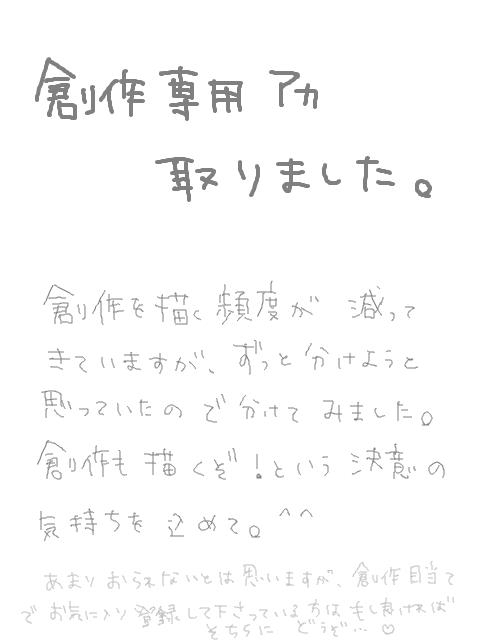 創作専用アカ
取りました。
創作を描く頻度が 減って
きていますが、ずっと分けようと
思っていたので分けてみました。
創作も描くぞ!という決意の
気持ちを込めて。^^
あまりおられないとは思いますが、創作目当て
でお気に入り登録して下さっている方はもし良ければ
そちらにどうぞ…♡